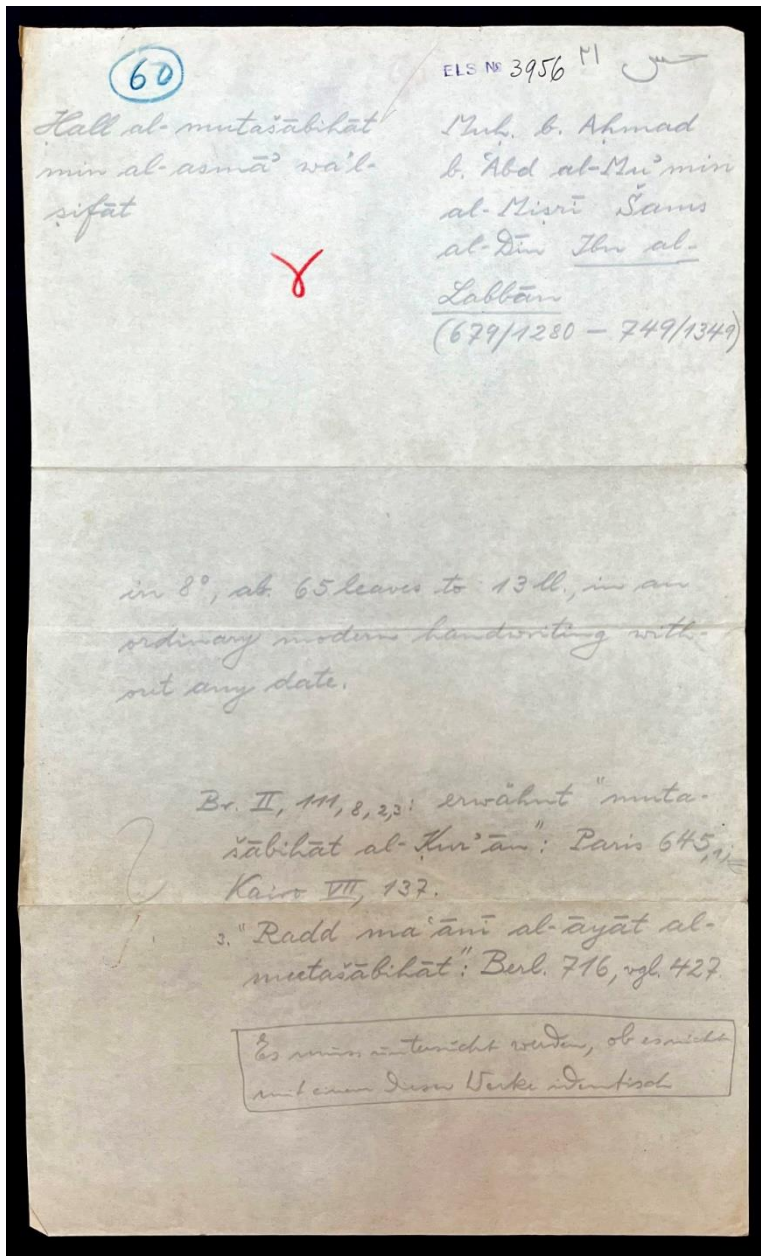 60
ELS № 3956
Ḥall al-mutašābihāt
min al-asmāʾ wa'l-
ṣifāt
Muḥ. b. Aḥmad
b. ʿAbd al-Muʾmin
al-Miṣrī Šams
al-Dīn Ibn al-
Labbān
(679/1280 – 749/1349)
in 8°, ab. 65 leaves to 13 ll., in an
ordinary modern handwriting with-
out any date.
Br. II, 111, 8, 2,3: erwähnt "muta-
šābihāt al-Ḳurʾān": Paris 645,1,
Kairo VII, 137.
3. "Radd maʿānī al-āyāt al-
mutašābihāt": Berl. 716, vgl. 427.
Es muss untersucht werden, ob es nicht
mit einem dieser Werke identisch